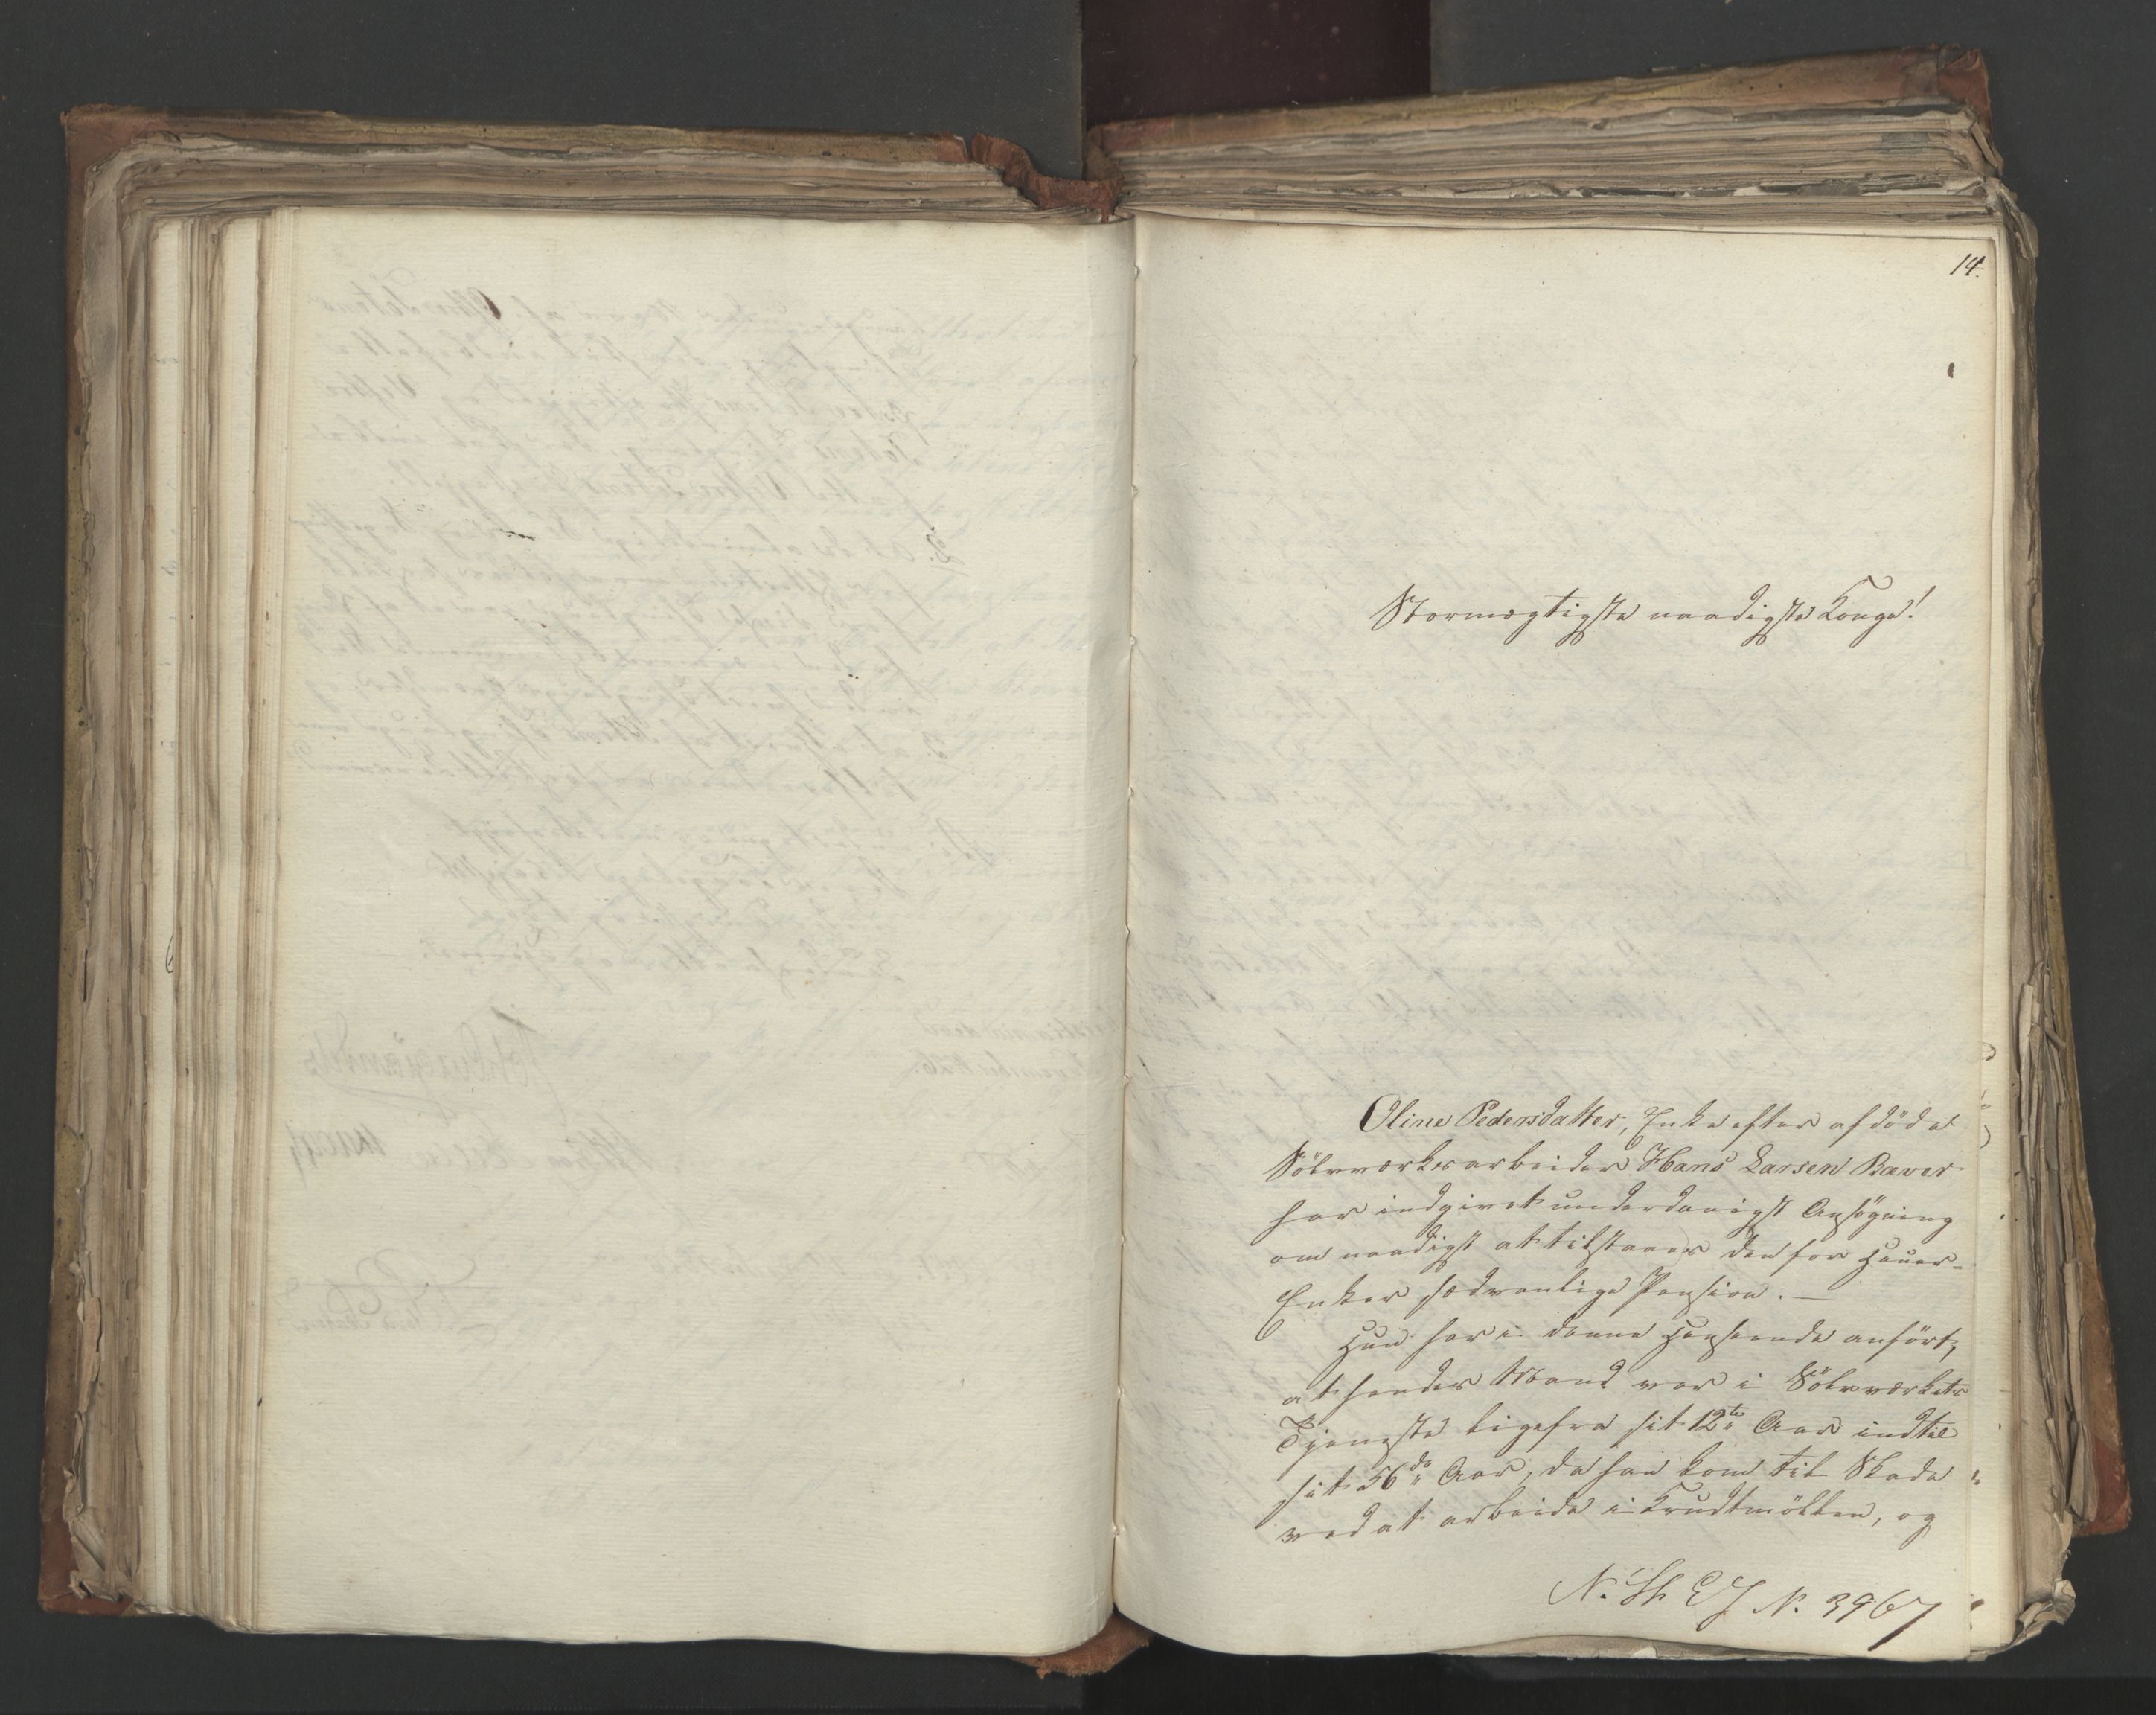 14.
Stormægtigste naadigste Konge!
Oline Pedersdatter, Enke efter afdöde
Sölvværksarbeider Hans Larsen Bæver
har indgivet underdanigst Ansögning
om naadigst at tilstaaes den for Hauer-
Enker sædvanlige Pension. —
Hun har i denne Henseende anfört,
at hendes Mand var i Sölvværkets
Tjeneste ligefra sit 12te Aar indtil
sit 56de Aar, da han kom til Skade
ved at arbeide i Krudtmöllen, og
No. 3967